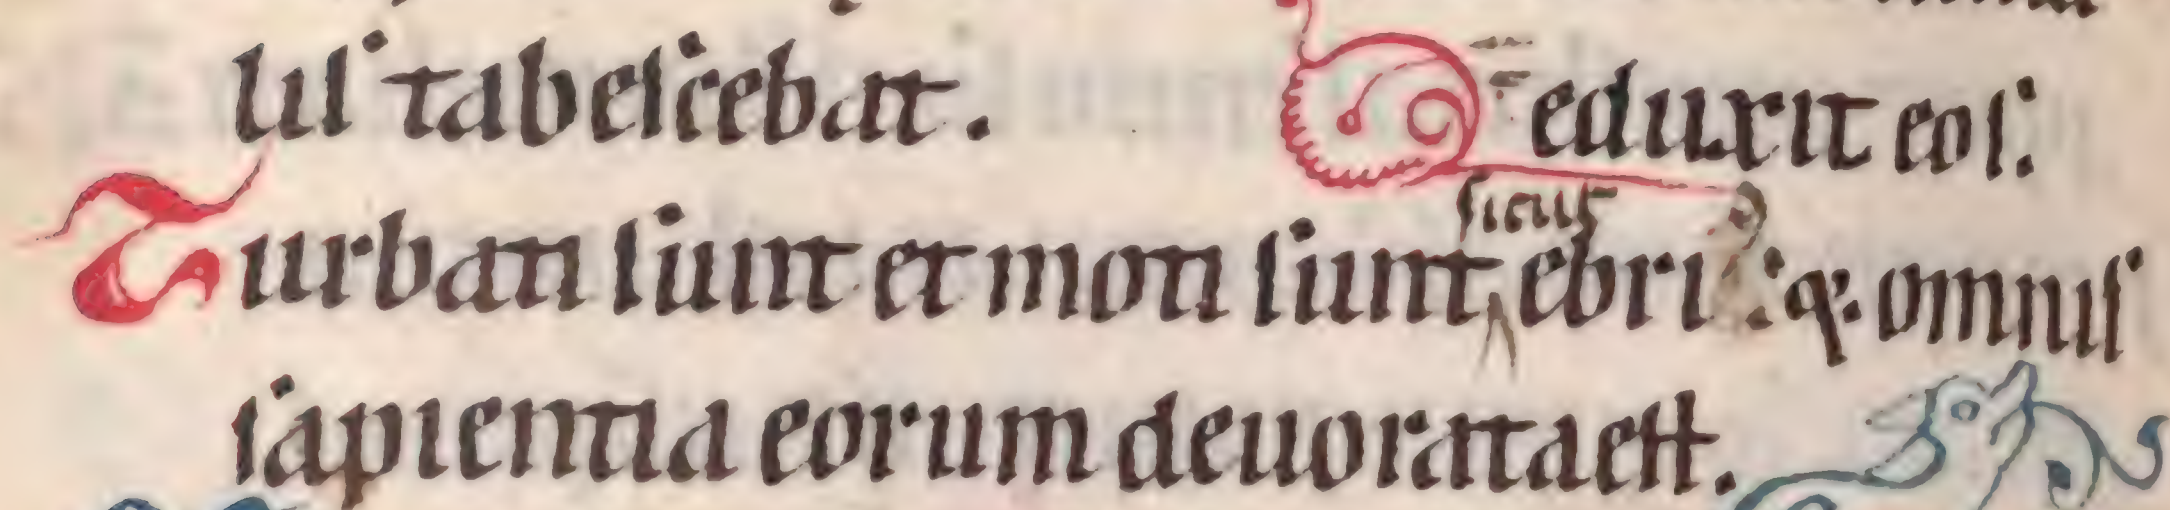 lis tabescebat. Deduxit eos:
sicut
Turbati sunt et moti sunt ebri : q; omnis
sapientia eorum deuorata est.